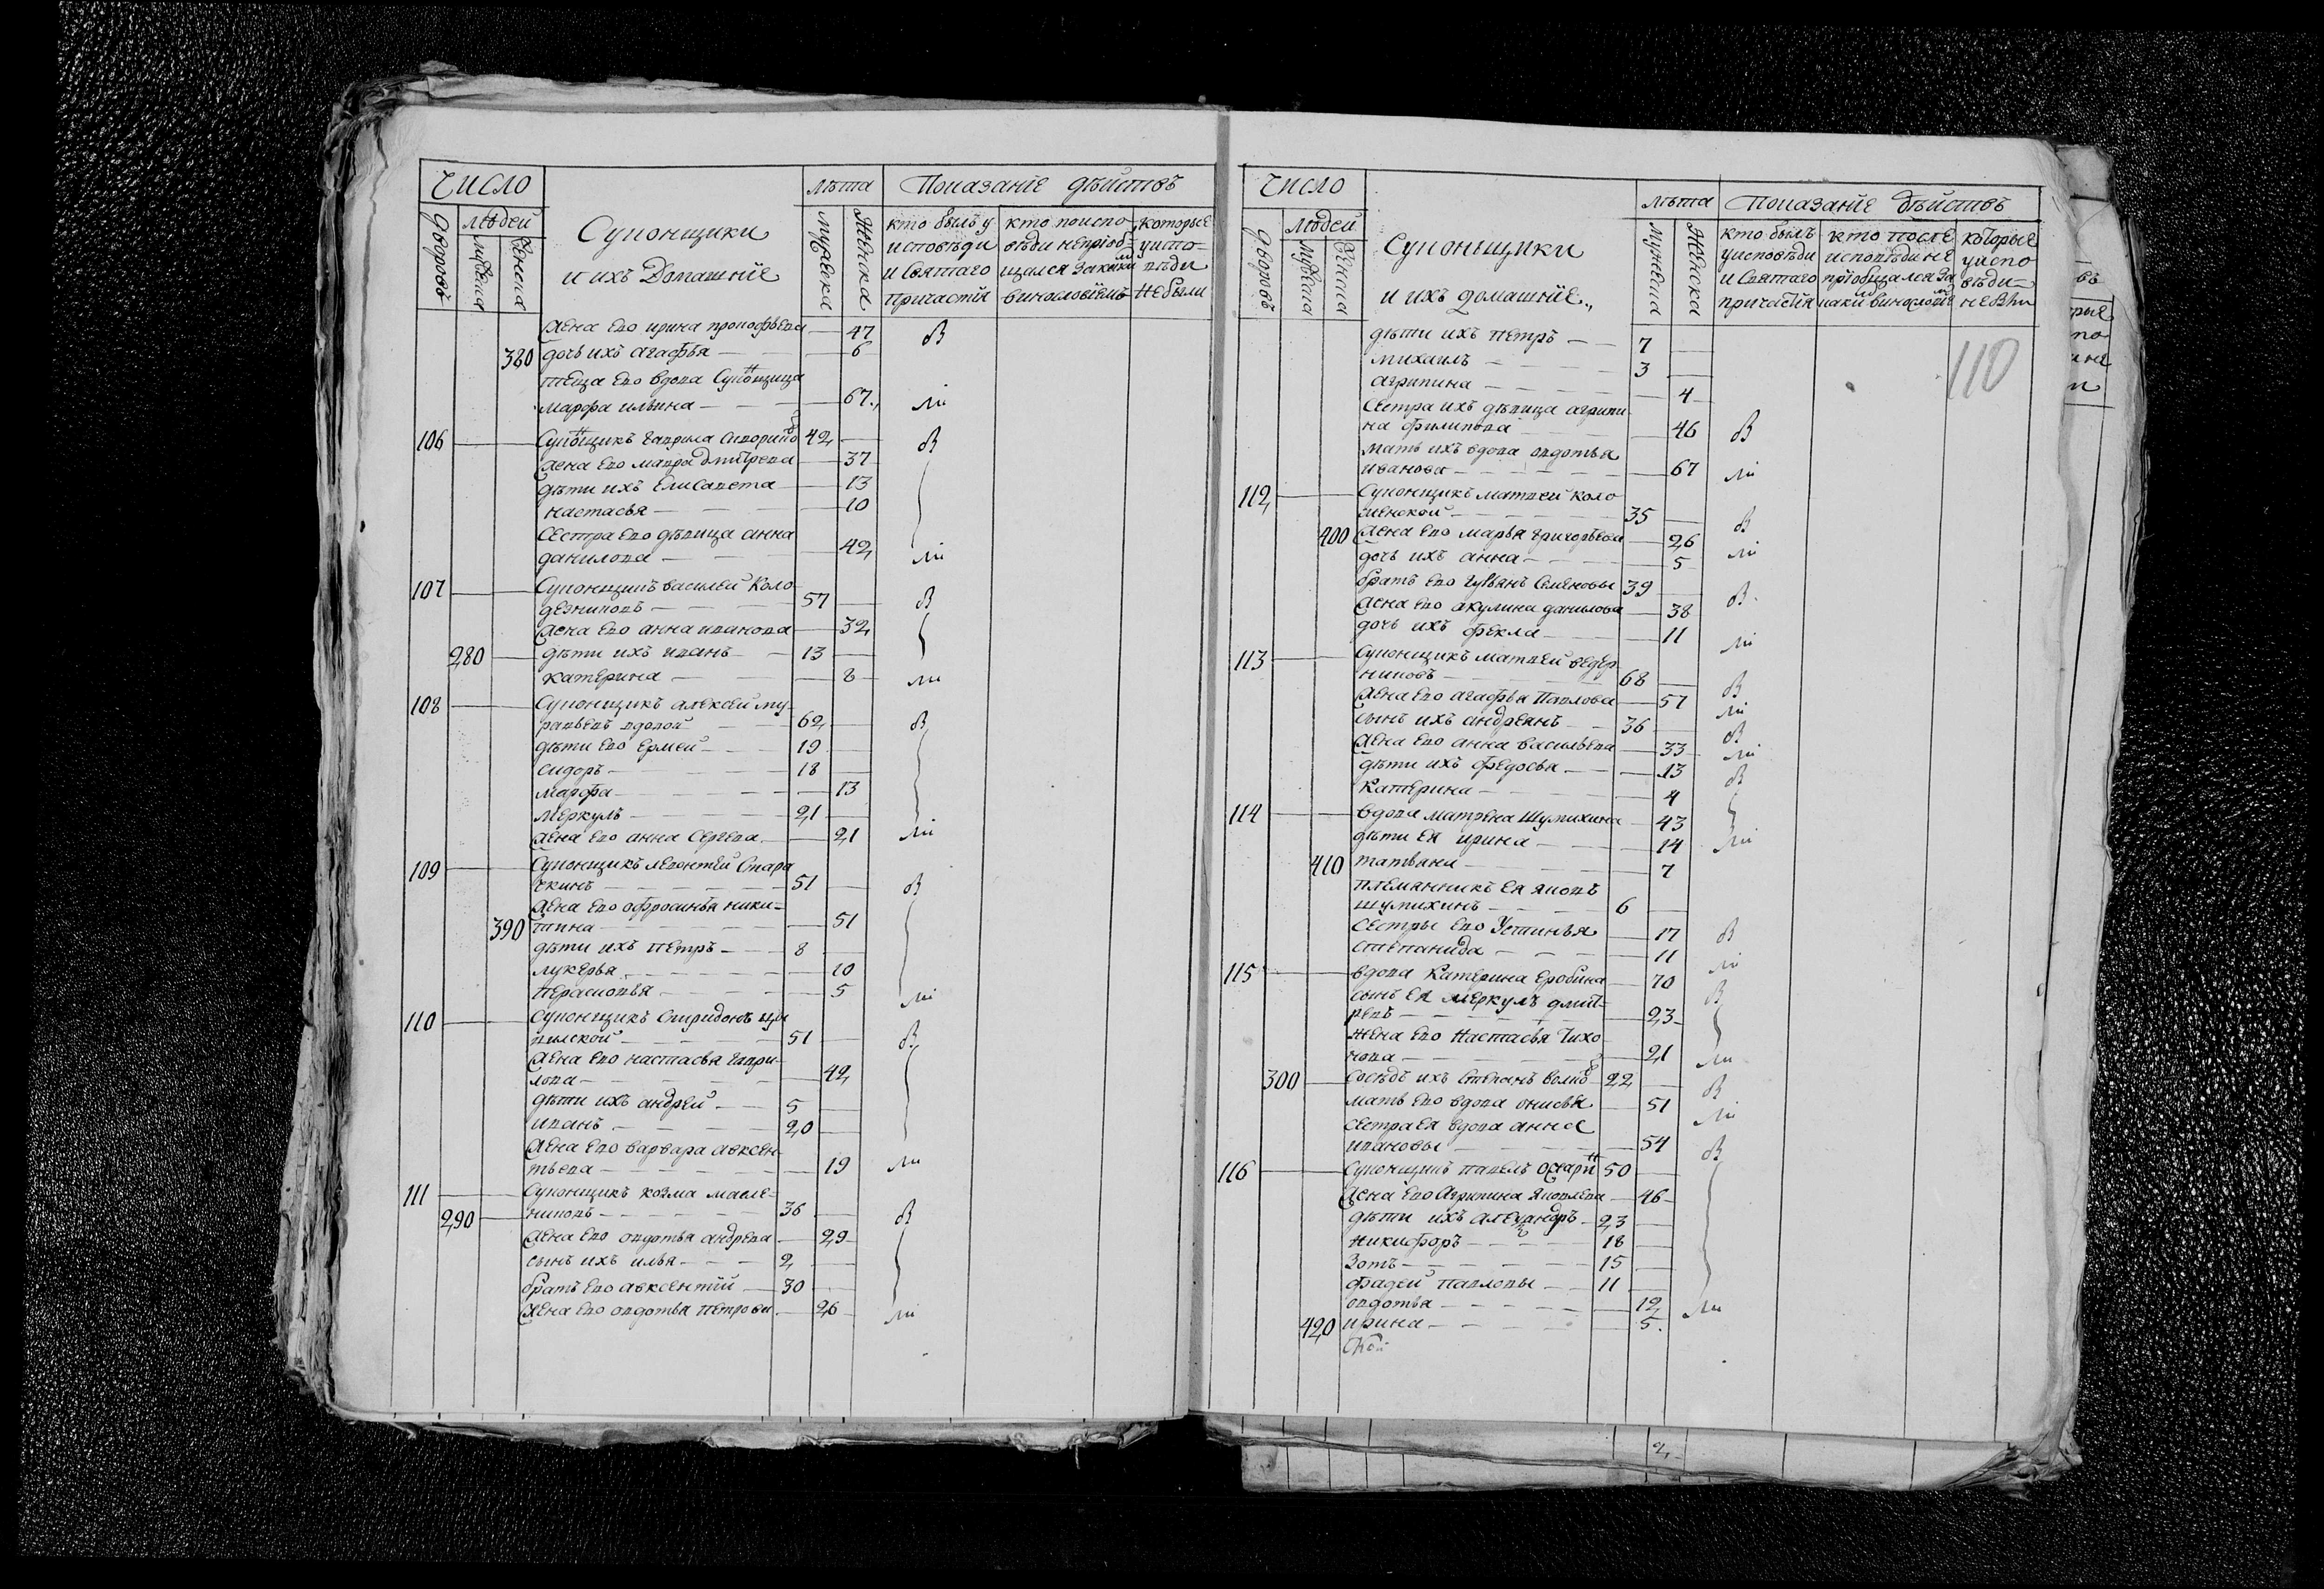 Число
Лѣта Показание дѣйствъ
дворовъ
людей
мужеска
женска
Суконщики
и ихъ Домашнїе
мужеска
женска
кто былъ у
исповѣди
и святаго
причастїя
кто по испо
вѣди не прїоб
щался
винословїемъ
которые
у испо
вѣди
не были
жена ево ирина прокофьева — 47 В
380 дочь ихъ агафья — 6
теща ево вдова Суконщица
марфа ильина — 67 ли
106 Суконщикъ гаврила 42 В
жена ево мавра дмитрева — 37
дѣти ихъ Елисавета — 13
настасья — 10
Сестра ево дѣвица анна
данилова — 42 ли
107 Суконщикъ василей Коло
дезниковъ — 57 В
жена ево анна иванова — 32
280 дѣти ихъ иванъ — 13
катерина — 8 ли
108 Суконщикъ алексей му
равьевъ вдовой 62 В
дѣти ево Ермей — 19
сидоръ — 18
марфа — 13
меркулъ — 21
жена ево анна Сергева — 21 ли
109 Суконщикъ леонтей Стара
чкинъ — 51 В
жена ево офросинья ники-
390 тина — 51
дѣти ихъ петръ — 8
лукерья — 10
Парасковья — 5 ли
110 Суконщикъ Спиридонъ
51 В
жена ево настасья гаври-
лова — 42
дѣти ихъ андрей — 5
иванъ — 20
жена ево варвара авксен-
тьева — 19 ли
111 Суконщикъ козма масле-
290 никовъ — 36 В
жена ево овдотья андрева — 29
сынъ ихъ илья — 2
братъ ево авксентїй — 30
жена ево овдотья петрова — 26 ли
Число
Лѣта Показанїе дѣйствъ
дворовъ
людей
мужеска
женска
Суконьщики
и ихъ домашнїе
мужеска
женска
кто былъ
у исповѣди
и святаго
причастїя
кто после
исповѣди не
прїобщался за
каки винословїе
которые
у испо
вѣди
не были
110
дѣти ихъ петръ — 7
михаилъ — 3
агрипина — 4
Сестра ихъ дѣвица агрипи
на филипова — 46 В
мать ихъ вдова овдотья
иванова — 67 ли
112 Суконщикъ матвей коло
менской — 35 В
400 жена ево марья григорьева — 26
дочь ихъ анна — 5 ли
братъ ево Семеновы 39 В
жена ево акулина данилова — 38
дочь ихъ фекла — 11 ли
113 Суконщикъ матвей ведер
никовъ — 68 В
жена ево агафья Павлова — 57 ли
сынъ ихъ андреянъ — 36 В
жена ево анна васильева — 33 ли
дѣти ихъ федосья — 13 В
Катерина — 4
114 вдова матрена шумихина — 43
дѣти ея ирина — 14 ли
410 татьяна — 7
племянникъ ея яковъ
шумихинъ — 6
Сестры ево Устинья — 17 В
степанида — 11 ли
115 вдова Катерина Еробина — 70 В
сынъ ея меркулъ дмит-
ревъ — 23
жена ево Настасья Тихо
нова — 21 ли
300 Сосѣдъ ихъ Степанъ 22 В
мать ево вдова онисья — 51 ли
сестра ея вдова анна
ивановы — 54 В
116 Суконщикъ павелъ 50
жена ево Агрипина Яковлева — 46
дѣти ихъ александръ — 23
никифоръ — 18
Зотъ — 15
фадей павловы — 11
овдотья — 12 ли
420 ирина — 5
2